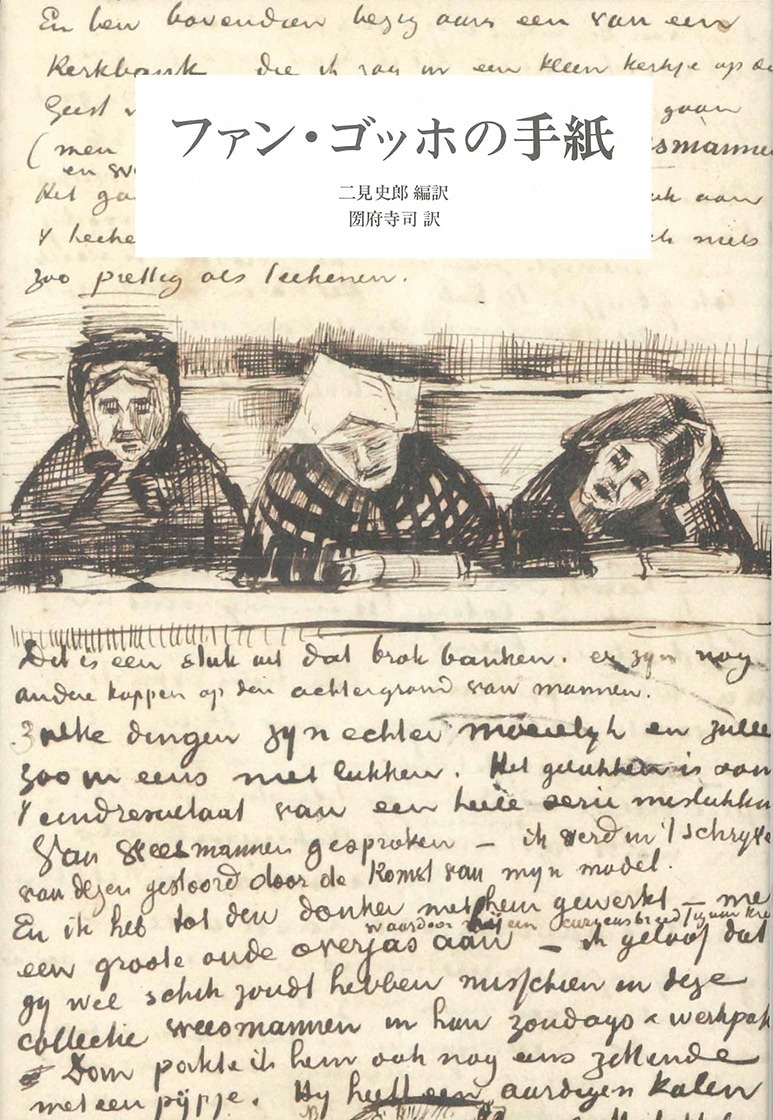 En ben bovendien bezig aan een van een
Kerkbank die ik zag in een kleen kerkje op de
Geest gaan
(men esmannen
en
Het aan
't niets
zoo prettig als teekenen.
ファン・ゴッホの手紙
二見史郎 編訳
圀府寺司 訳
Dit is een stuk uit dat brok banken. er zyn nog
andere koppen op den achtergrond van mannen.
Zulke dingen zyn echter moeielyk en zulle
zoo in eens niet lukken. Het gelukken is van
't eindresultaat van een heele serie mislukkin
Van Weesmannen gesproken – ik werd in 't schryve
van dezen gestoord door de Komst van myn model.
En ik heb tot den donker met hem gewerkt – 
waardoor
een groote oude overjas aan – ik geloof dat
gy wel schik zoudt hebben misschien in deze
collectie weesmannen in hun zondags & werkpak
Dom pakte ik hem ook nog eens zittende
met een pypje. Hy heeft een aardigen kalen